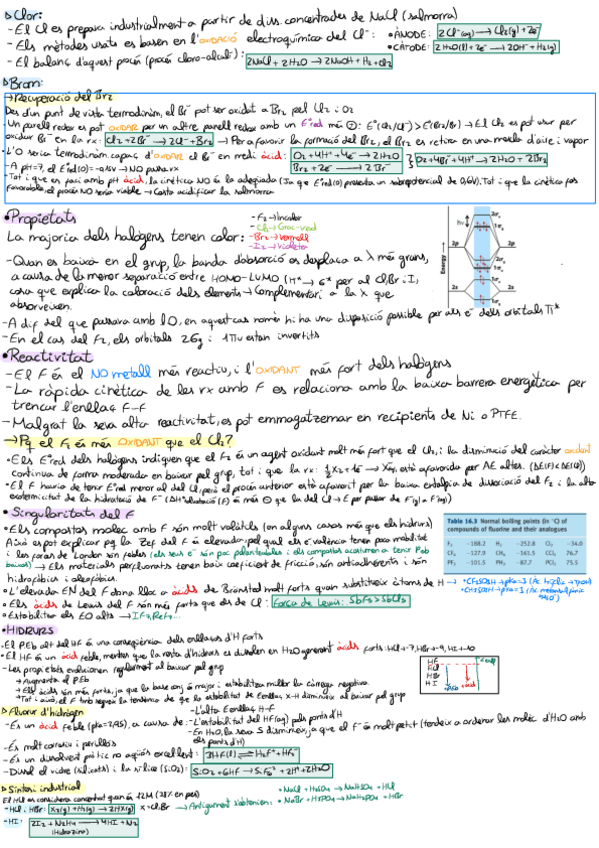 ▷ Clor:
- El Cl es prepara industrialment a partir de diss. concentrades de NaCl (salmorra)
- Els mètodes usats es basen en l'OXIDACIÓ electroquímica del Cl⁻: • ÀNODE: 2Cl⁻(aq) → Cl₂(g) + 2e⁻
• CÀTODE: 2H₂O(l) + 2e⁻ → 2OH⁻ + H₂(g)
- El balanç d'aquest procés (procés cloro-alcalí): 2NaCl + 2H₂O → 2NaOH + H₂ + Cl₂
▷ Brom:
→ Recuperació del Br₂
Des d'un punt de vista termodinàm, el Br⁻ pot ser oxidat a Br₂ pel Cl₂ i O₂
- Un parell redox es pot OXIDAR per un altre parell redox amb un E°red més ⊕: E°(Cl₂/Cl⁻) > E°(Br₂/Br⁻) → El Cl₂ es pot usar per
oxidar Br⁻ en la rx: Cl₂ + 2Br⁻ → 2Cl⁻ + Br₂ → Per a favorir la formació del Br₂, el Br₂ es retira en una mescla d'aire i vapor
- L'O₂ seria termodinàm. capaç d'OXIDAR el Br⁻ en medi àcid: O₂ + 4H⁺ + 4e⁻ → 2H₂O
Br₂ + 2e⁻ → 2Br⁻
O₂ + 4Br⁻ + 4H⁺ → 2H₂O + 2Br₂
- A pH=7, el E°red(O) = -0,15V → NO passa rx
- Tot i que es faci amb pH àcid, la cinètica NO és la adequada (Ja que E°red(O) presenta un sobrepotencial de 0,6V). Tot i que la cinètica fos
favorable, el procés NO seria viable → Costa acidificar la salmorra
• Propietats
La majoria dels halògens tenen color:
- F₂ → Incolor
- Cl₂ → Groc-verd
- Br₂ → Vermell
- I₂ → Violeta
- Quan es baixa en el grup, la banda d'absorció es desplaça a λ més grans,
a causa de la menor separació entre HOMO-LUMO (π* → σ* per al Cl, Br i I),
cosa que explica la coloració dels elements → Complementari a la λ que
absorveixen.
- A dif del que passava amb l'O, en aquest cas només hi ha una disposició possible per als e⁻ dels orbitals π*
- En el cas del F₂, els orbitals 2σg i 1πu estan invertits
Energy
hν
2p
2p
• Reactivitat
- El F és el NO metall més reactiu, i l'OXIDANT més fort dels halògens
- La ràpida cinètica de les rx amb F es relaciona amb la baixa barrera energètica per
trencar l'enllaç F-F
- Malgrat la seva alta reactivitat, es pot emmagatzemar en recipients de Ni o PTFE.
→ Pq el F₂ és més OXIDANT que el Cl₂?
• Els E°red dels halògens indiquen que el F₂ és un agent oxidant molt més fort que el Cl₂, i la disminució del caràcter oxidant
continua de forma moderada en baixar pel grup, tot i que la rx: ½X₂ + 1e⁻ → X⁻(g), està afavorida per AE altes. (ΔE(F) < ΔE(Cl))
• El F hauria de tenir E°red menor al del Cl, però el procés anterior està afavorit per la baixa entalpia de dissociació del F₂ i la alta
exotermicitat de la hidratació de F⁻
• Singularitats del F
• Els compostos molec amb F són molt volàtils (en alguns casos més que els hidrurs)
Això es pot explicar pq la Zef del F és elevada, pel qual els e⁻ valència tenen poca mobilitat
i les forces de London són febles (els seus e⁻ són poc polaritzables i els compostos acostumen a tenir Peb
baixos) → Els materials perfluorats tenen baix coeficient de fricció, són antiadherents i són
hidrofòbics i oleofòbics.
• L'elevada EN del F dona lloc a àcids de Brønsted molt forts quan substitueix àtoms de H → • CF₃SO₃H → pKa=-3
• CH₃SO₃H → pKa=1
• Els àcids de Lewis del F són més forts que els de Cl: Força de Lewis: SbF₅ > SbCl₅
• Estabilitza els EO alts → IF₇, ReF₇...
Table 16.3 Normal boiling points (in °C) of
compounds of fluorine and their analogues
F₂ −188.2 H₂ −252.8 Cl₂ −34.0
CF₄ −127.9 CH₄ −161.5 CCl₄ 76.7
PF₃ −101.5 PH₃ −87.7 PCl₃ 75.5
• HIDRURS
- El PEb alt del HF és una conseqüència dels enllaços d'H forts
- El HF és un àcid feble, mentre que la resta d'hidrurs es dissolen en H₂O generant àcids forts: HCl → -7, HBr → -9, HI → -10
- Les propietats evolucionen regularment al baixar pel grup
→ Augmenta el PEb
→ Ells àcids són més forts, ja que la base conj és major i estabilitza millor la càrrega negativa
• Tot i això, el F trenca la tendència de que la estabilitat de l'enllaç X-H disminueix al baixar pel grup
HF
HCl
HBr
HI
▷ Fluorur d'hidrògen
- És un àcid feble (pka=2,95), a causa de:
- L'alta E enllaç H-F
- L'estabilitat del HF(aq) pels ponts d'H
- En H₂O, la seva S disminueix, ja que el F⁻ és molt petit (tendeix a ordenar les molèc d'H₂O amb
els ponts d'H)
- És molt corrosiu i perillós
- És un dissolvent pròtic no aquós excel·lent: 3HF(l) → H₂F⁺ + HF₂⁻
- Dissol el vidre (silicats) i la sílice (SiO₂): SiO₂ + 6HF → SiF₆²⁻ + 2H⁺ + 2H₂O
▷ Síntesi industrial
El HCl es considera concentrat quan és 12M (38% en pes)
- HCl i HBr: X₂(g) + H₂(g) → 2HX(g) X = Cl, Br → Antigament s'obtenien:
• NaCl + H₂SO₄ → NaHSO₄ + HCl
• NaBr + H₃PO₄ → NaH₂PO₄ + HBr
- HI: 2I₂ + N₂H₄ → 4HI + N₂
(Hidrazina)